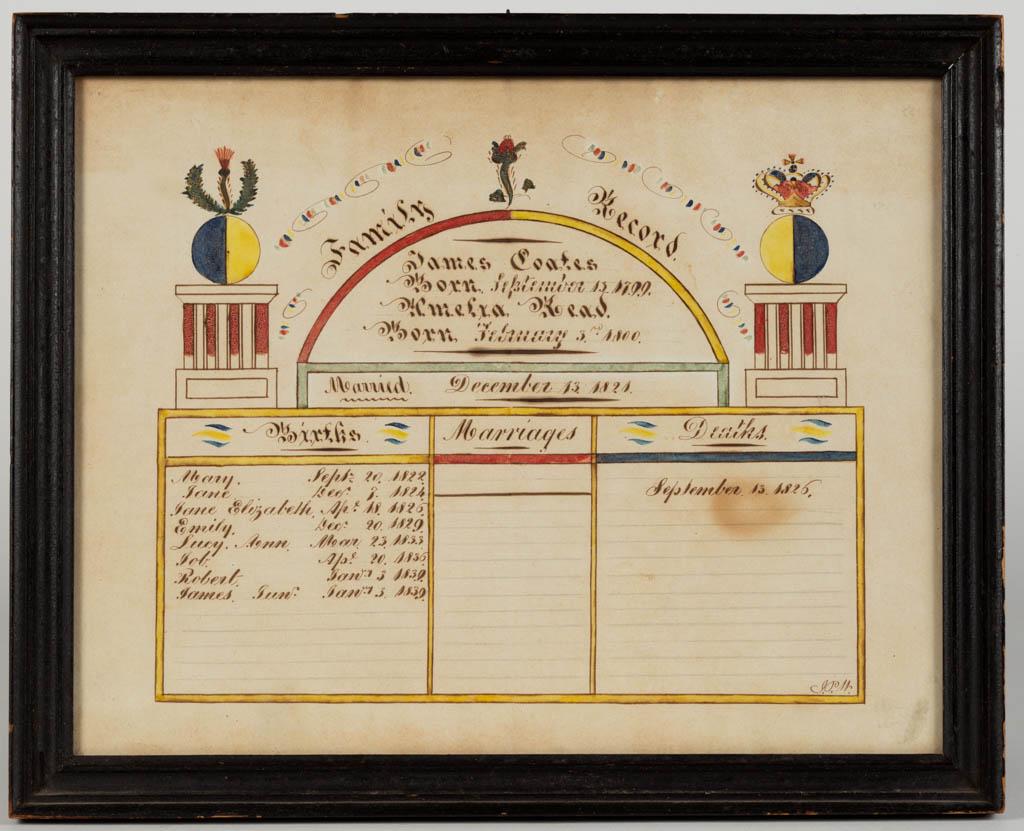 Family Record.
James Coates
Born, September 15, 1799.
Amelia Read.
Born, February 3rd 1800.
Married. December 13, 1821.
Births. Marriages Deaths.
Mary, Sept. 20, 1822.
Jane Dec. 7, 1824. September 13, 1826.
Jane Elizabeth, Apl. 18, 1826.
Emily, Dec. 20, 1829.
Lucy, Ann, Mar. 23, 1833
Job. Apl. 20, 1836.
Robert. Janry 3, 1839.
James, Junr. Janry 3, 1839.
J.P.H.